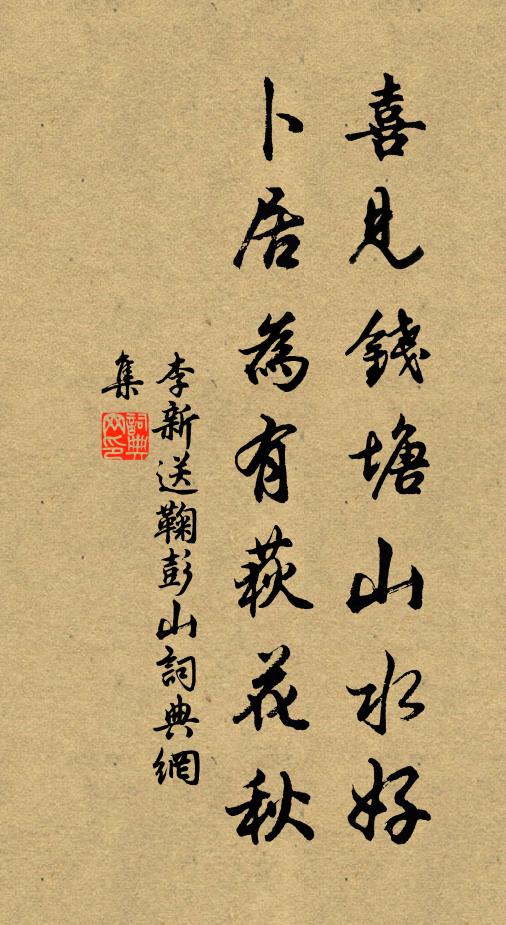 喜見錢塘山水好
卜居為有荻花秋
李新送鞠彭山詞典網
集
詞典网印